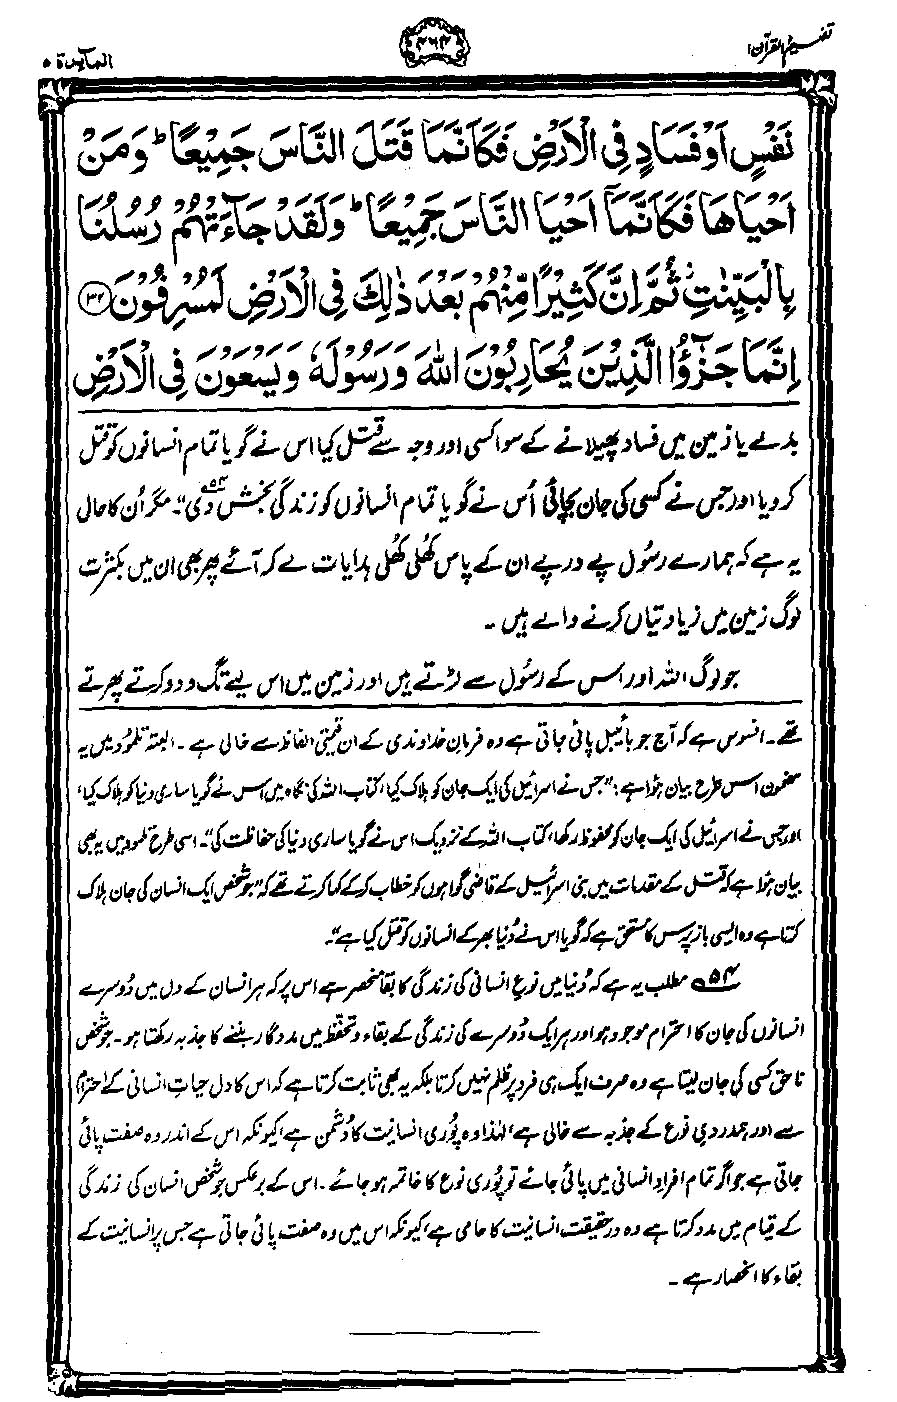 تفہیم القرآن ۱
۴۶۴
المآئدۃ ۵
نَفْسٍ اَوْ فَسَادٍ فِی الْاَرْضِ فَكَاَنَّمَا قَتَلَ النَّاسَ جَمِیْعًاؕ وَمَنْ
اَحْیَاهَا فَكَاَنَّمَاۤ اَحْیَا النَّاسَ جَمِیْعًاؕ وَلَقَدْ جَآءَتْهُمْ رُسُلُنَا
بِالْبَیِّنٰتِ٘ ثُمَّ اِنَّ كَثِیْرًا مِّنْهُمْ بَعْدَ ذٰلِكَ فِی الْاَرْضِ لَمُسْرِفُوْنَ ﴿۳۲﴾
اِنَّمَا جَزٰٓؤُا الَّذِیْنَ یُحَارِبُوْنَ اللّٰهَ وَرَسُوْلَهٗ وَیَسْعَوْنَ فِی الْاَرْضِ
بدلے یا زمین میں فساد پھیلانے کے سوا کسی اور وجہ سے قتل کیا اس نے گویا تمام انسانوں کو قتل
کر دیا اور جس نے کسی کی جان بچائی اُس نے گویا تمام انسانوں کو زندگی بخش دی۵۴"۔ مگر اُن کا حال
یہ ہے کہ ہمارے رسُول پے درپے ان کے پاس کھُلی کھُلی ہدایات لے کر آئے پھر بھی ان میں بکثرت
لوگ زمین میں زیادتیاں کرنے والے ہیں۔
جو لوگ اللہ اور اس کے رسُول سے لڑتے ہیں اور زمین میں اس لیے تگ و دو کرتے پھرتے
تھے۔ افسوس ہے کہ آج جو بائیبل پائی جاتی ہے وہ فرمانِ خداوندی کے ان قیمتی الفاظ سے خالی ہے۔ البتہ تلمُود میں یہ
مضمون اس طرح بیان ہُوا ہے: "جس نے اسرائیل کی ایک جان کو ہلاک کیا، کتاب اللہ کی نگاہ میں اس نے گویا ساری دنیا کو ہلاک کیا،
اور جس نے اسرائیل کی ایک جان کو محفوظ رکھا، کتاب اللہ کے نزدیک اس نے گویا ساری دنیا کی حفاظت کی"۔ اسی طرح تلمود میں یہ بھی
بیان ہُوا ہے کہ قتل کے مقدمات میں بنی اسرائیل کے قاضی گواہوں کو خطاب کر کے کہا کرتے تھے کہ "جو شخص ایک انسان کی جان ہلاک
کرتا ہے وہ ایسی باز پرس کا مستحق ہے کہ گویا اس نے دُنیا بھر کے انسانوں کو قتل کیا ہے"۔
۵۴ مطلب یہ ہے کہ دُنیا میں نوعِ انسانی کی زندگی کا بقا منحصر ہے اس پر کہ ہر انسان کے دل میں دُوسرے
انسانوں کی جان کا احترام موجود ہو اور ہر ایک دُوسرے کی زندگی کے بقاء و تحفظ میں مددگار بننے کا جذبہ رکھتا ہو۔ جو شخص
ناحق کسی کی جان لیتا ہے وہ صرف ایک ہی فرد پر ظلم نہیں کرتا بلکہ یہ بھی ثابت کرتا ہے کہ اس کا دل حیاتِ انسانی کے احترام
سے اور ہمدردیِ نوع کے جذبہ سے خالی ہے، لہٰذا وہ پُوری انسانیت کا دُشمن ہے، کیونکہ اس کے اندر وہ صفت پائی
جاتی ہے جو اگر تمام افرادِ انسانی میں پائی جائے تو پُوری نوع کا خاتمہ ہو جائے۔ اس کے برعکس جو شخص انسان کی زندگی
کے قیام میں مدد کرتا ہے وہ درحقیقت انسانیت کا حامی ہے، کیونکہ اس میں وہ صفت پائی جاتی ہے جس پر انسانیت کے
بقاء کا انحصار ہے۔